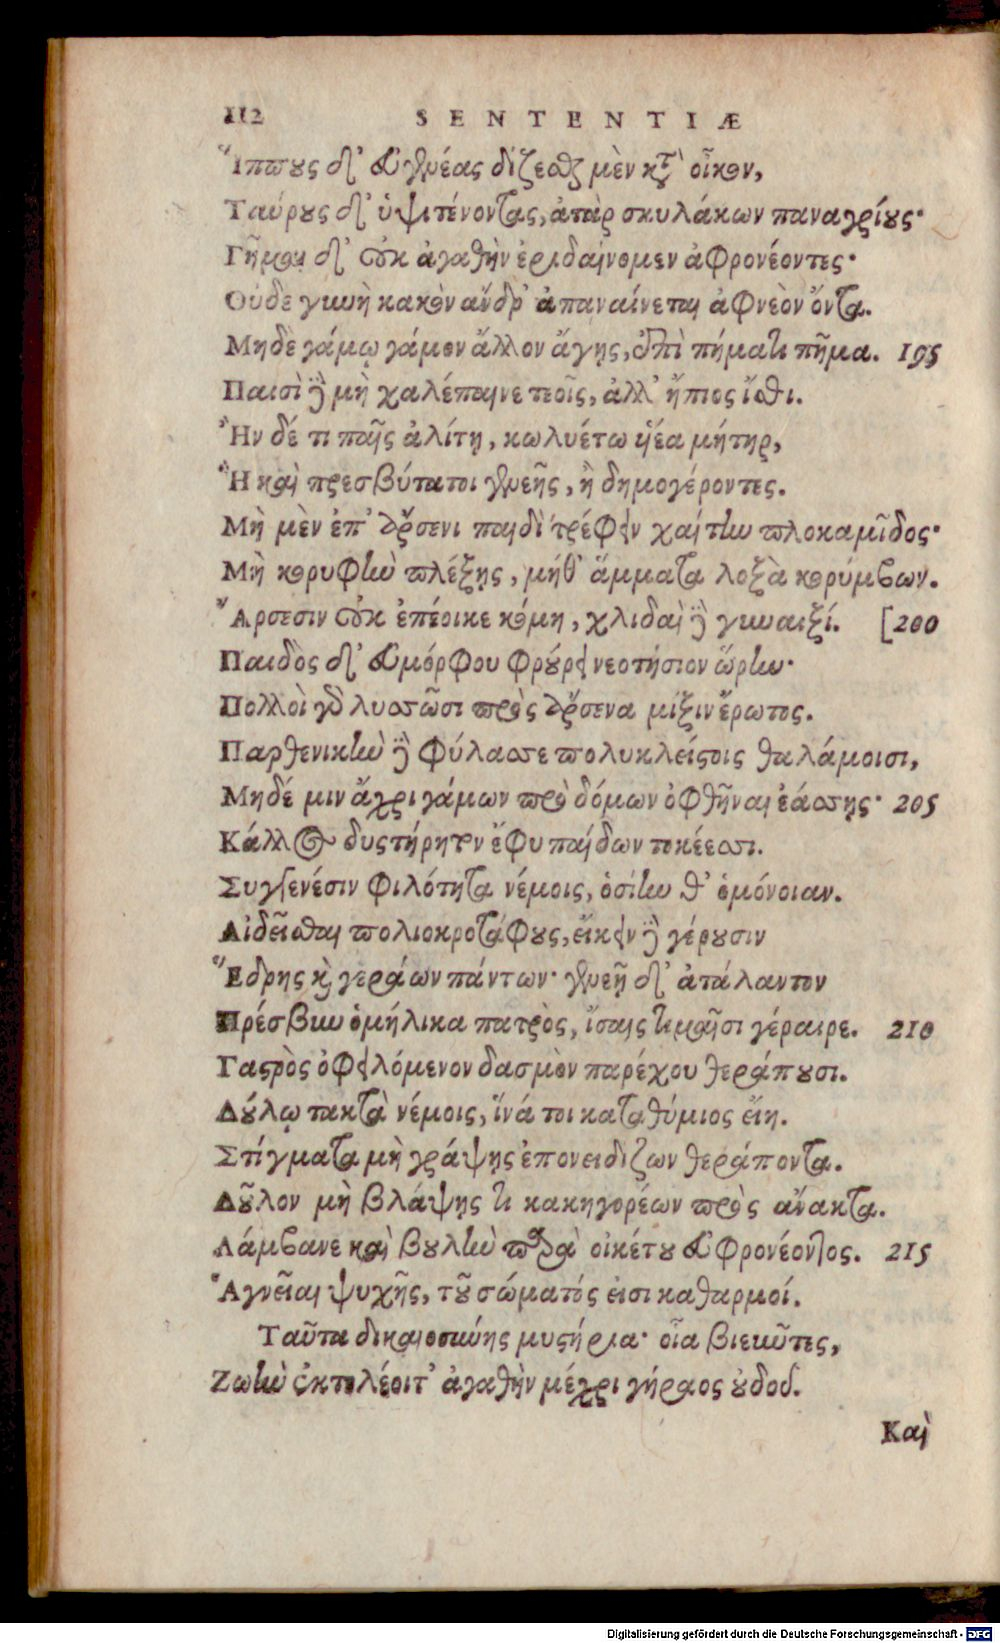 112 SENTENTIÆ
Ἵππους δ' εὐγενέας δίζεσθαι μὲν κατὰ οἶκον,
Ταύρους δ' ὑψιτένοντας, ἀτὰρ σκυλάκων παναγρίους·
Γῆμαι δ' οὐκ ἀγαθὴν ἐριδαίνομεν ἀφρονέοντες·
Οὐδὲ γυνὴ κακὸν ἄνδρ' ἀπαναίνεται ἀφνεὸν ὄντα.
Μηδὲ γάμῳ γάμον ἄλλον ἄγῃς, ἐπὶ πήματι πῆμα. 195
Παισὶ δὲ μὴ χαλέπαινε τεοῖς, ἀλλ' ἤπιος ἴσθι.
Ἢν δέ τι παῖς ἀλίτῃ, κωλυέτω υἱέα μήτηρ,
Ἢ καὶ πρεσβύτατοι γενεῆς, ἢ δημογέροντες.
Μὴ μὲν ἐπ' ἄρσενι παιδὶ τρέφειν χαίτην πλοκαμῖδος·
Μὴ κορυφὴν πλέξῃς, μήθ' ἅμματα λοξὰ κορύμβων.
Ἄρσεσιν οὐκ ἐπέοικε κόμη, χλιδαὶ δὲ γυναιξί. [200
Παιδὸς δ' εὐμόρφου φρούρει νεοτήσιον ὥρην·
Πολλοὶ γὰρ λυσσῶσι πρὸς ἄρσενα μίξιν ἔρωτος.
Παρθενικὴν δὲ φύλασσε πολυκλείστοις θαλάμοισι,
Μηδέ μιν ἄχρι γάμων πρὸ δόμων ὀφθῆναι ἐάσσῃς· 205
Κάλλος δυστήρητον ἔφυ παίδων τοκέεσσι.
Συγγενέσιν φιλότητα νέμοις, ὁσίην θ' ὁμόνοιαν.
Αἰδεῖσθαι πολιοκροτάφους, εἴκειν δὲ γέρουσιν
Ἕδρης καὶ γεράων πάντων· γενεῇ δ' ἀτάλαντον
Πρέσβυν ὁμήλικα πατρὸς, ἴσαις τιμαῖσι γέραιρε. 210
Γαστρὸς ὀφειλόμενον δασμὸν παρέχου θεράπουσι.
Δούλῳ τακτὰ νέμοις, ἵνά τοι καταθύμιος εἴη.
Στίγματα μὴ γράψῃς ἐπονειδίζων θεράποντα.
Δοῦλον μὴ βλάψῃς τι κακηγορέων πρὸς ἄνακτα.
Λάμβανε καὶ βουλὴν παρὰ οἰκέτου εὐφρονέοντος. 215
Ἁγνεῖαι ψυχῆς, τοῦ σώματός εἰσι καθαρμοί.
Ταῦτα δικαιοσύνης μυστήρια· οἷα βιεῦντες,
Ζωὴν ἐκτολέοιτ' ἀγαθὴν μέχρι γήραος οὐδοῦ.
Καὶ
Digitalisierung gefördert durch die Deutsche Forschungsgemeinschaft - DFG